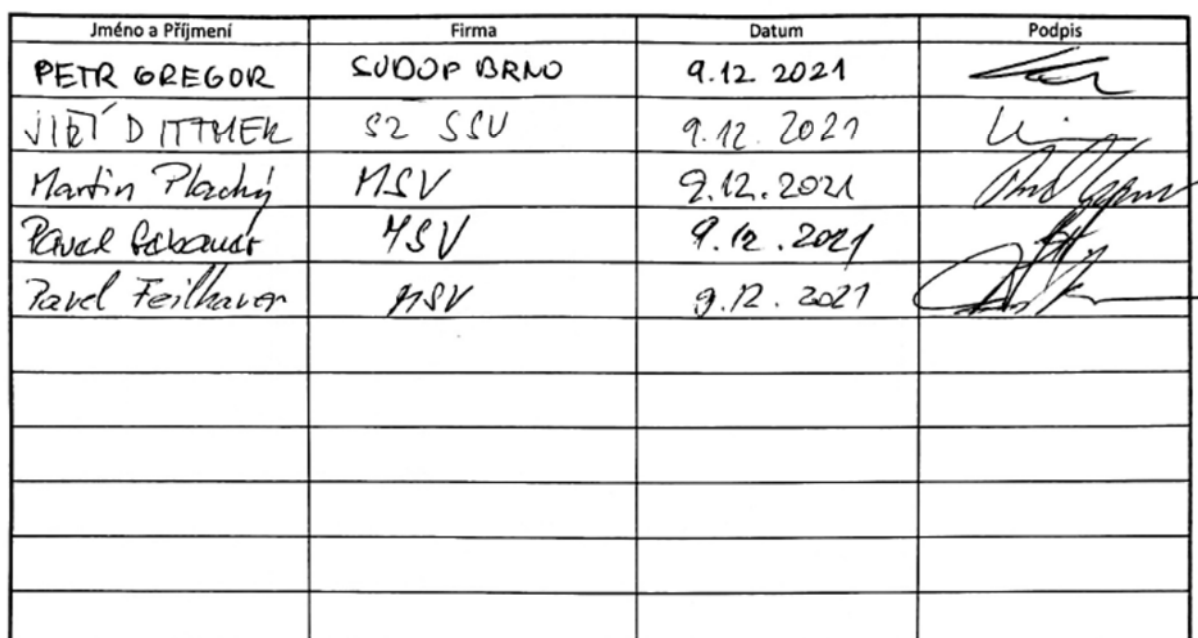 Jméno a Příjmení Firma Datum Podpis
PETR GREGOR SUDOP BRNO 9.12 2021
JIŘÍ DITTMER SŽ SSV 9.12. 2021
Martin Plachý MSV 9.12.2021
Pavel MSV 9.12.2021
Pavel Feilhauer MSV 9.12.2021